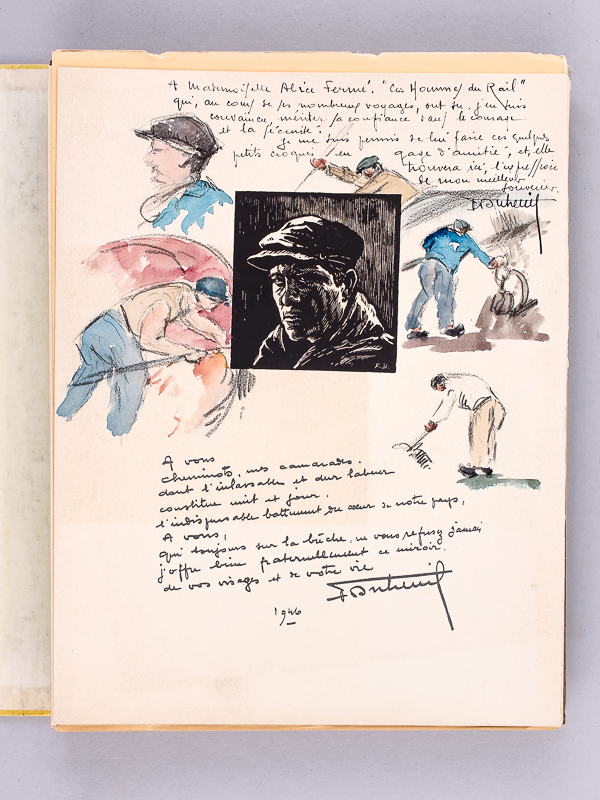 A Mademoiselle Alice Fermé. "Ces Hommes du Rail"
qui, au cours de ses nombreux voyages, ont su, j'en suis
convaincu, mériter sa confiance sauf le courage
et la sérénité.
Je me suis permis de lui faire ces quelques
petits croquis, en gage d'amitié, et, elle
trouvera ici, l'expression
de mon meilleur
souvenir.
FDuheuil
F.D.
A vous
cheminots, mes camarades.
dont l'inlassable et dur labeur
constitue nuit et jour,
l'indispensable battement du cœur de notre pays,
A vous,
qui toujours sur la brêche, ne vous refusez jamais
j'offre bien fraternellement ce miroir.
de vos visages et de votre vie
FDuheuil
1946